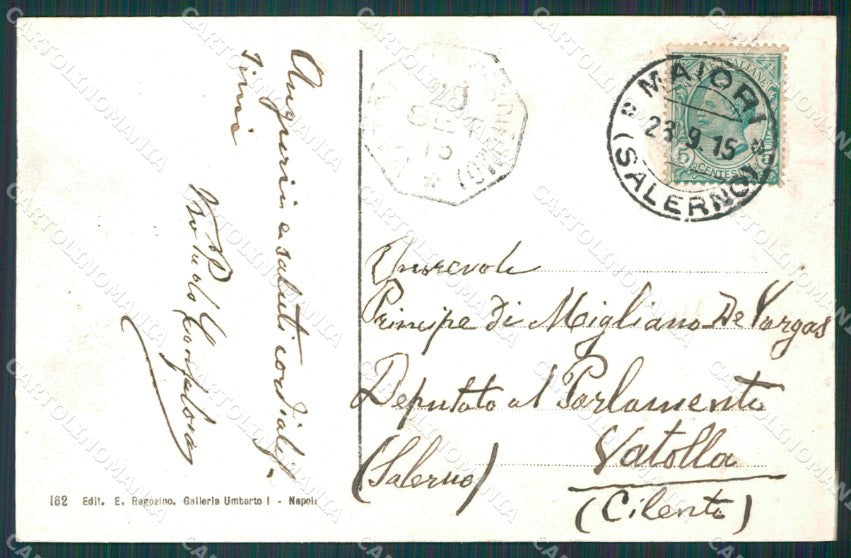 Auguri e saluti cordialis-
simi
162 Edit. E. Ragozino. Galleria Umberto I - Napoli
20
SET
15
MAIORI
23.9.15
(SALERNO)
ITALIANE
CENTESIMI
Onorevole
Principe di Migliano De Vargas
Deputato al Parlamento
Vatolla
(Salerno)
(Cilento)
CARTOLINOMANIA